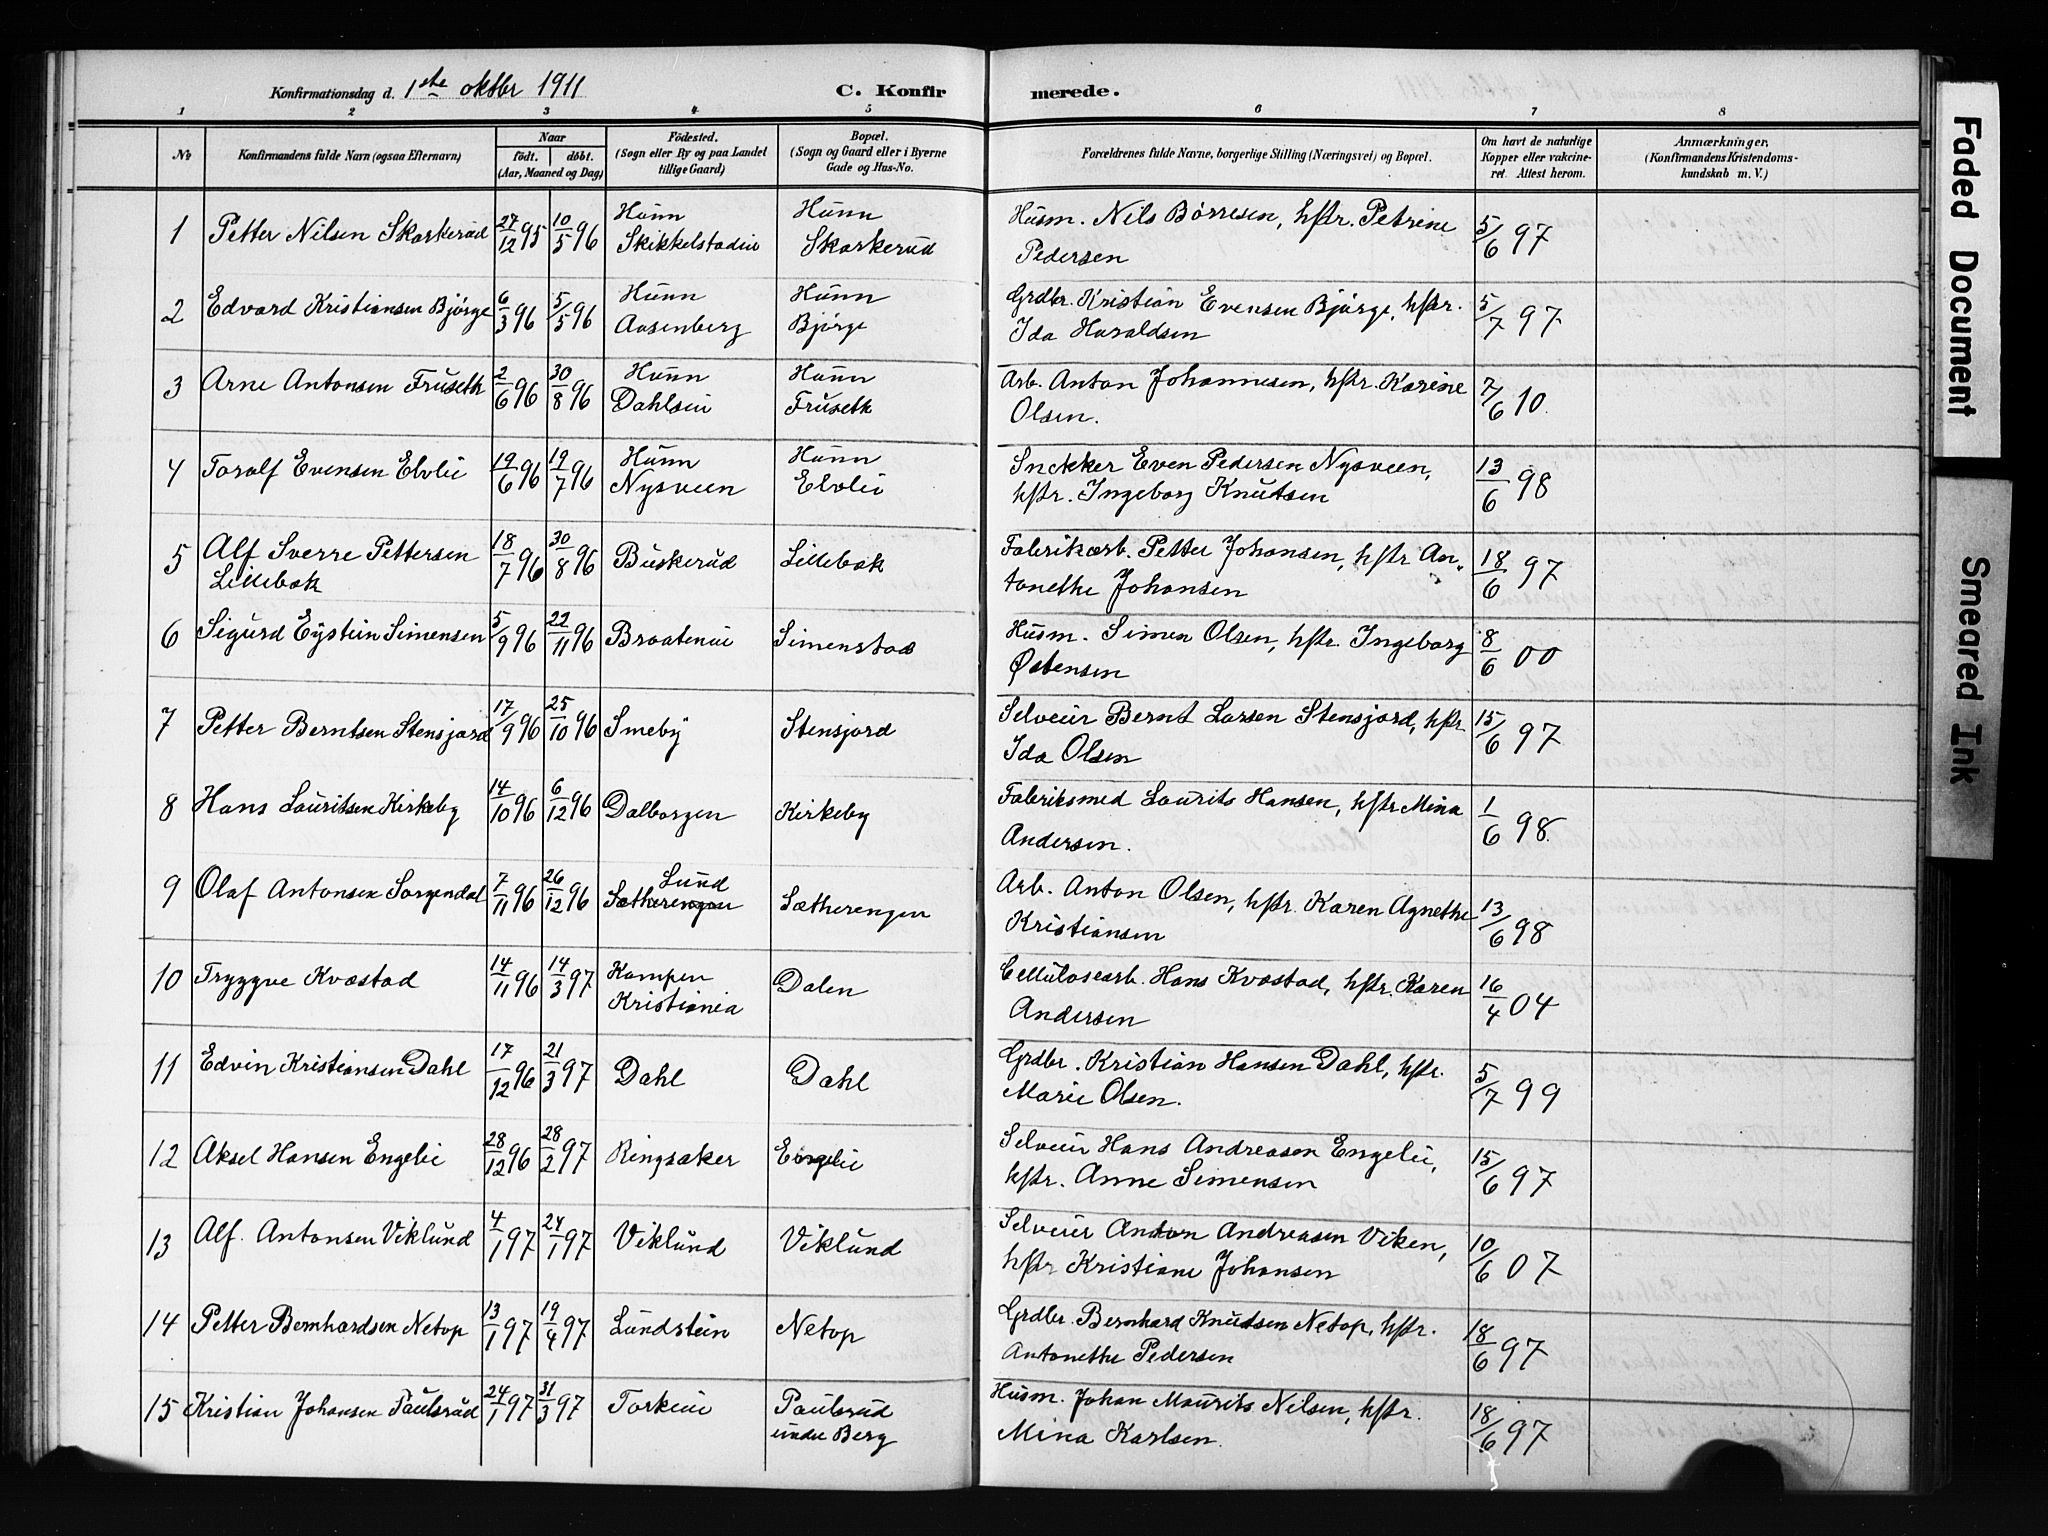 Konfirmationsdag d. 1ste oktbr 1911
C. Konfir merede.
1 2 3 4 5 6 7 8
No
Konfirmandens fulde Navn (ogsaa Efternavn)
Naar
födt. döbt.
(Aar, Maaned og Dag)
Födested.
(Sogn eller By og paa Landet
tillige Gaard)
Bopæl.
(Sogn og Gaard eller i Byerne
Gade og Hus-No.
Forældrenes fulde Navne, borgerlige Stilling (Næringsvei) og Bopæl.
Om havt de naturlige
Kopper eller vakcine-
ret. Attest herom.
Anmærkninger,
(Konfirmandens Kristendoms-
kundskab m. V.)
1 Petter Nilsen Skarkerud 27/12 95 10/5 96 Hunn Skikkelstadeie Hunn Skarkerud Husm. Nils Børresen, hstr. Petrine 5/6 97
Pedersen
2 Edvard Kristiansen Bjørge 6/3 96 5/5 96 Hunn Aasenberg Hunn Bjørge Grdbr. Kristian Evensen Bjørge, hstr. 5/7 97
Ida Haraldsen
3 Arne Antonsen Fruseth 2/6 96 30/8 96 Hunn Dahlseie Hunn Fruseth Arb. Anton Johannesen, hstr. Karine 7/6 10
Olsen.
4 Toralf Evensen Elvlie 19/6 96 19/7 96 Hunn Nysveen Hunn Elvlie Snekker Even Pedersen Nysveen, 13/6 98
hstr. Ingeborg Knutsen
5 Alf Sverre Pettersen 18/7 96 30/8 96 Buskerud Lillebæk Fabrikarb. Petter Johansen, hstr An- 18/6 97
Lillebæk tonethe Johansen
6 Sigurd Eystein Simensen 5/9 96 22/11 96 Braateneie Simenstad Husm. Simen Olsen, hstr. Ingeborg 8/6 00
Østensen
7 Petter Berntsen Stensjord 17/9 96 25/10 96 Smeby Stensjord Selveier Bernt Larsen Stensjord, hstr. 15/6 97
Ida Olsen
8 Hans Lauritsen Kirkeby 14/10 96 6/12 96 Dalborgen Kirkeby Fabriksmed Laurits Hansen, hstr Mina 1/6 98
Andersen.
9 Olaf Antonsen Sorgendal 7/11 96 26/12 96 Lund Sætherengen Sætherengen Arb. Anton Olsen, hstr. Karen Agnethe 13/6 98
Kristiansen
10 Tryggve Kvæstad 14/11 96 14/3 97 Kampen Kristiania Dalen Cellulosearb. Hans Kvæstad, hstr. Karen 16/4 04
Andersen
11 Edvin Kristiansen Dahl 17/12 96 21/3 97 Dahl Dahl Grdbr. Kristian Hansen Dahl, hstr. 5/7 99
Marie Olsen.
12 Aksel Hansen Engelie 28/12 96 28/2 97 Ringsaker Engelie Selveier Hans Andreasen Engelie, 15/6 97
hstr. Anne Simensen
13 Alf. Antonsen Viklund 4/1 97 24/1 97 Viklund Viklund Selveier Anton Andreasen Viken, 10/6 07
hstr Kristiane Johansen
14 Petter Bernhardsen Netop 13/1 97 19/4 97 Lundstein Netop Grdbr. Bernhard Knudsen Netop, hstr. 18/6 97
Antonethe Pedersen
15 Kristian Johansen Paulsrud 24/1 97 31/3 97 Torkeie Paulsrud Husm. Johan Maurits Nilsen, hstr. 18/6 97
under Berg Mina Karlsen.
Faded Document
Smeared Ink